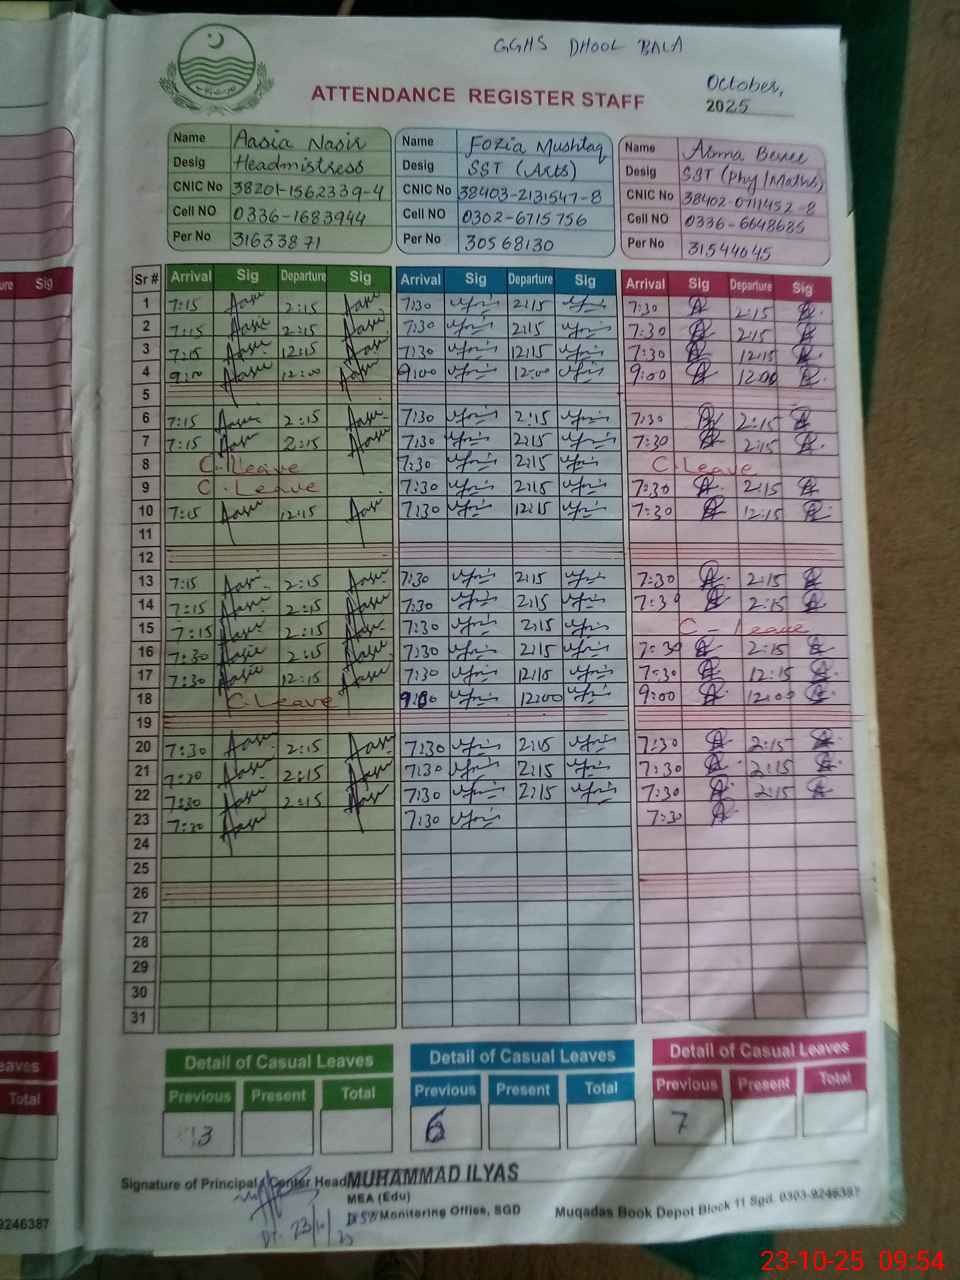 GGHS DHOOL BALA
ATTENDANCE REGISTER STAFF
October, 2025
Name Aasia Nasir Name Fozia Mushtaq Name
Desig Headmistress Desig SST (Arts) Desig SST (Phy/Maths)
CNIC No 38201-1562339-4 CNIC No 38403-2131547-8 CNIC No 38402-0711452-8
Cell NO 0336-1683944 Cell NO 0302-6715756 Cell NO 0336-6648685
Per No 31633871 Per No 30568130 Per No 31544045
Sr # Arrival Sig Departure Sig Arrival Sig Departure Sig Arrival Sig Departure Sig
1 7:15 2:15 7:30 2:15 7:30 2:15
2 7:15 2:15 7:30 2:15 7:30 2:15
3 7:15 12:15 7:30 12:15 7:30 12:15
4 9:00 12:00 9:00 12:00 9:00 12:00
5
6 7:15 2:15 7:30 2:15 7:30 2:15
7 7:15 2:15 7:30 2:15 7:30 2:15
8 C. Leave 7:30 2:15 C. Leave
9 C. Leave 7:30 2:15 7:30 2:15
10 7:15 12:15 7:30 12:15 7:30 12:15
11
12
13 7:15 2:15 7:30 2:15 7:30 2:15
14 7:15 2:15 7:30 2:15 7:30 2:15
15 7:15 2:15 7:30 2:15 C - Leave
16 7:30 2:15 7:30 2:15 7:30 2:15
17 7:30 12:15 7:30 12:15 7:30 12:15
18 C. Leave 9:00 12:00 9:00 12:00
19
20 7:30 2:15 7:30 2:15 7:30 2:15
21 7:30 2:15 7:30 2:15 7:30 2:15
22 7:30 2:15 7:30 2:15 7:30 2:15
23 7:30 7:30 7:30
24
25
26
27
28
29
30
31
Detail of Casual Leaves Detail of Casual Leaves Detail of Casual Leaves
Previous Present Total Previous Present Total Previous Present Total
13 6 7
Signature of Principal / Center Head
MUHAMMAD ILYAS
MEA (Edu)
Monitoring Office, SGD
Dt. 23/10/25
Muqadas Book Depot Block 11 Sgd. 0303-9246387
Sig
Total
9246387
23-10-25 09:54